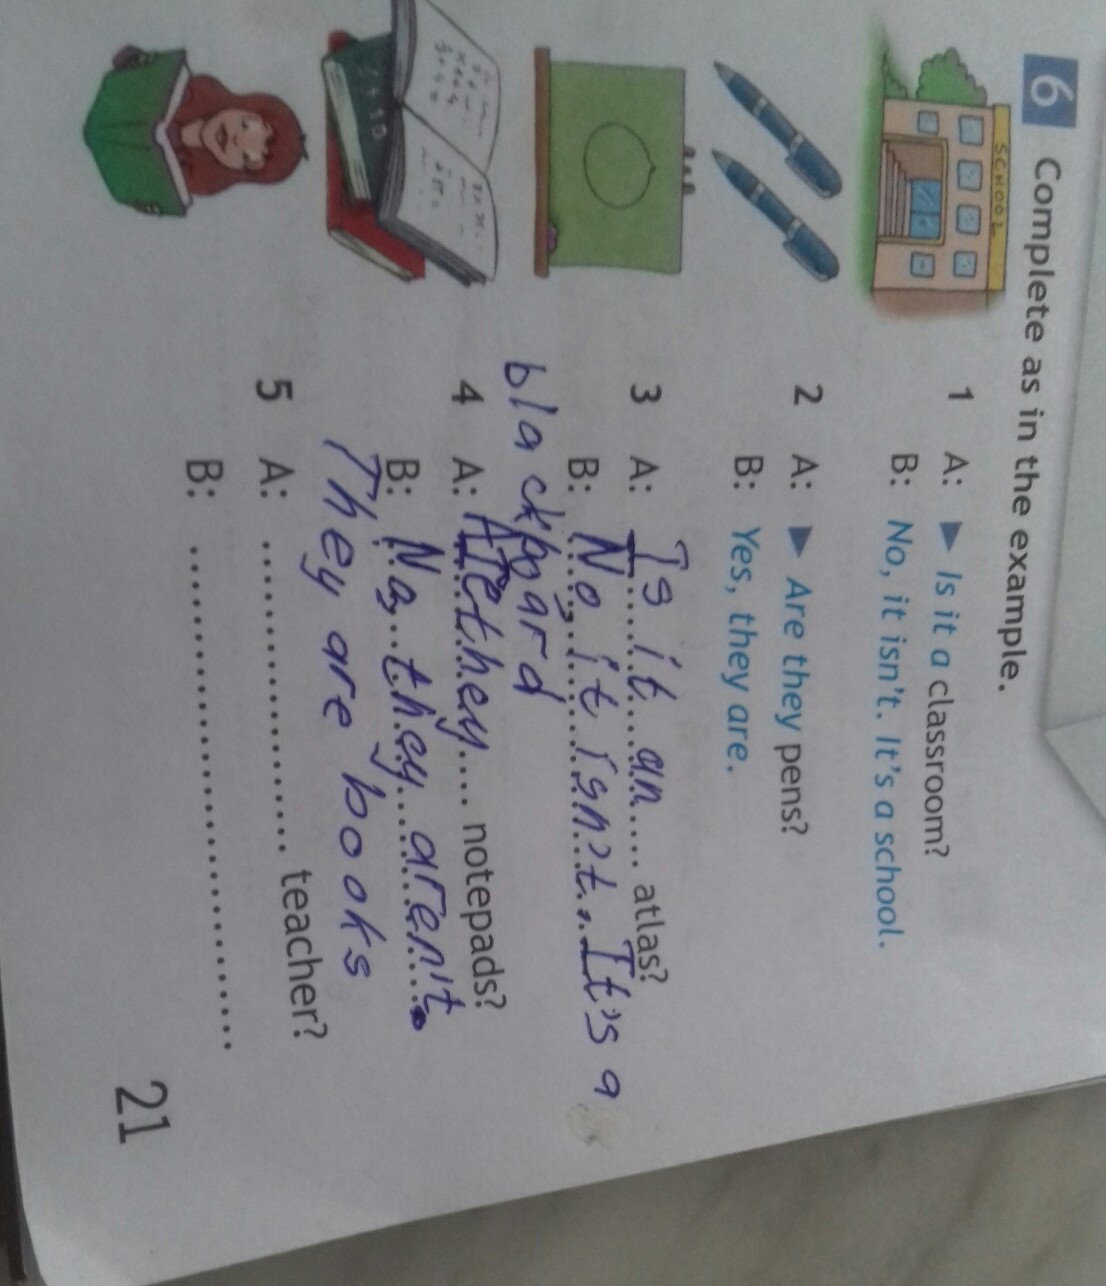 6 Complete as in the example.
SCHOOL
1 A: ▶ Is it a classroom?
B: No, it isn't. It's a school.
2 A: ▶ Are they pens?
B: Yes, they are.
3 A: Is it an atlas?
B: No, it isn't. It's a
blackboard
4 A: Are they notepads?
B: No, they aren't.
They are books
5 A: .................... teacher?
B: ................................
21